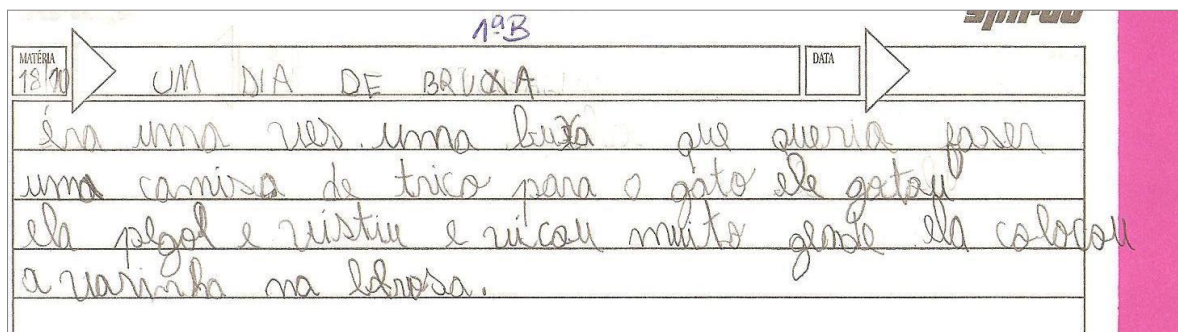 1ªB
MATÉRIA
DATA
18/10
UM DIA DE BRUXA
éra uma ves uma buxa que queria faser
uma camisa de trico para o gato ele gotou
ela pegol e vistiu e vicou muito gende ela colocou
a varinha na